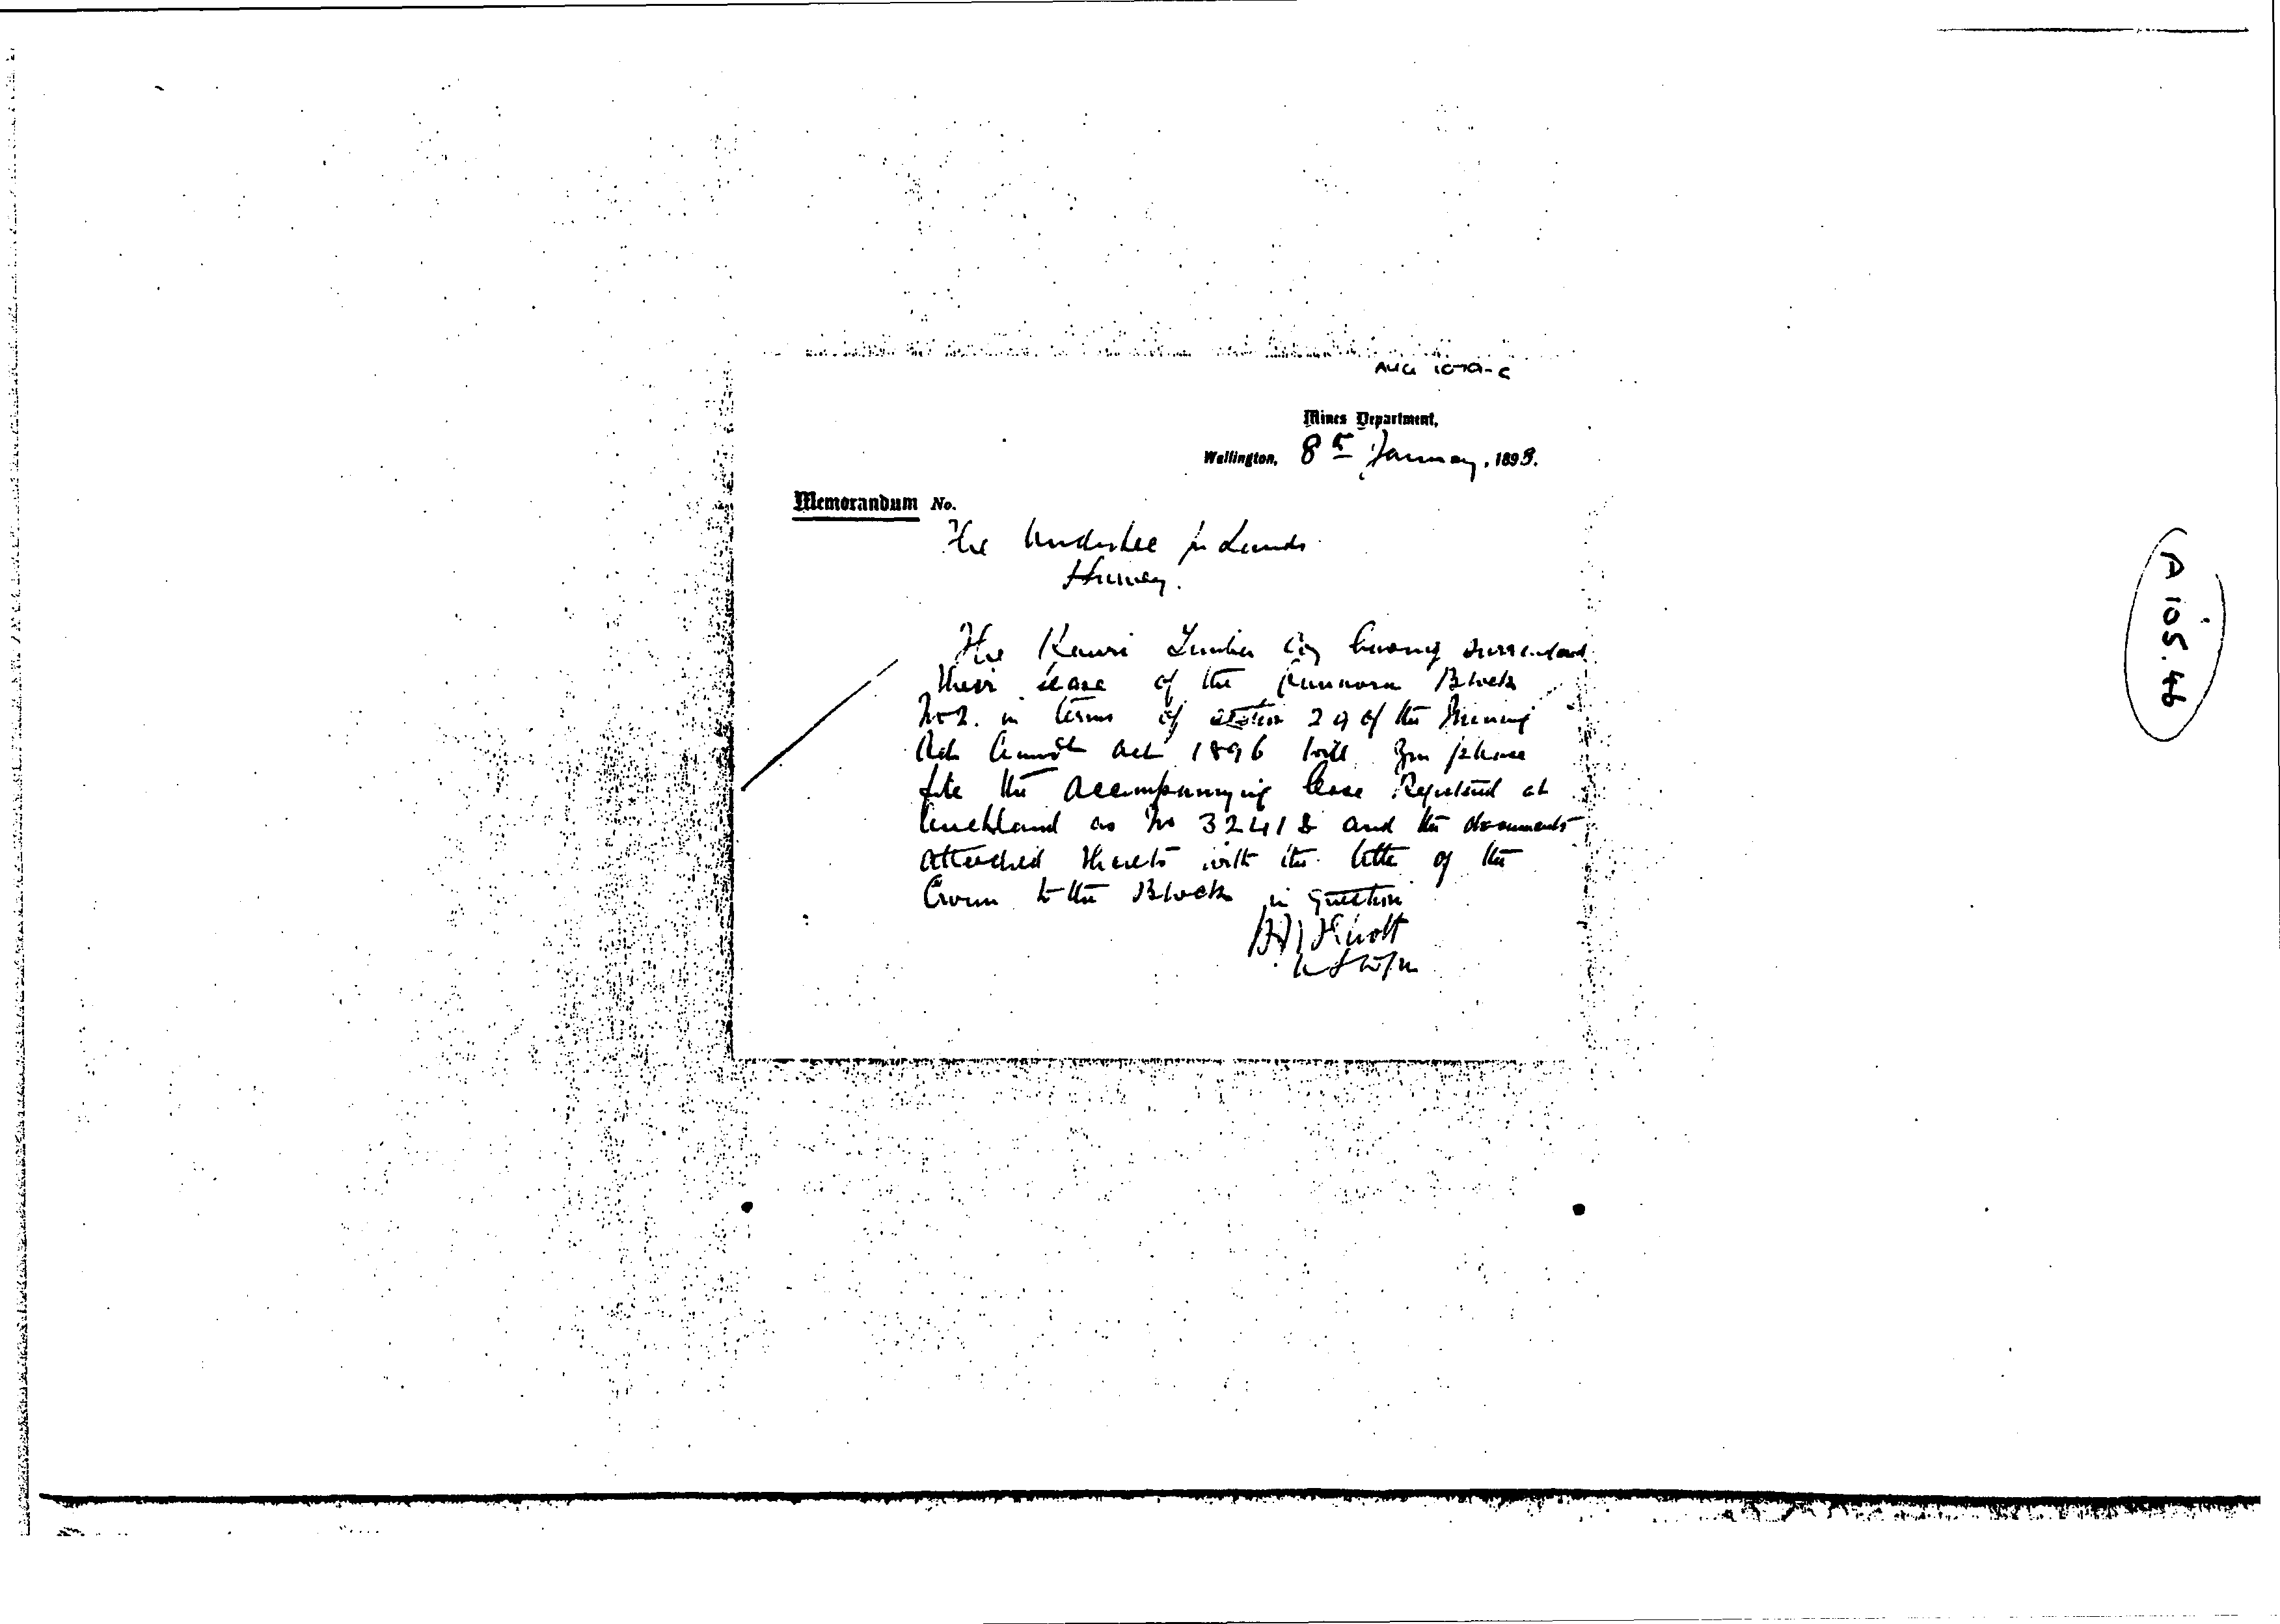 Mines Department,
Wellington, 8th January, 1898.
Memorandum No.
The Undersec for Lands
Survey.
The Kauri Timber Coy having surrendered
their lease of the Block
No 2. in terms of section 29 of the Mining
Act Amdt Act 1896 will you please
file the accompanying lease Registered at
Auckland as No 32418 and the documents
attached thereto with the title of the
Crown to the Block in question
H J H Eliott
A 105.46